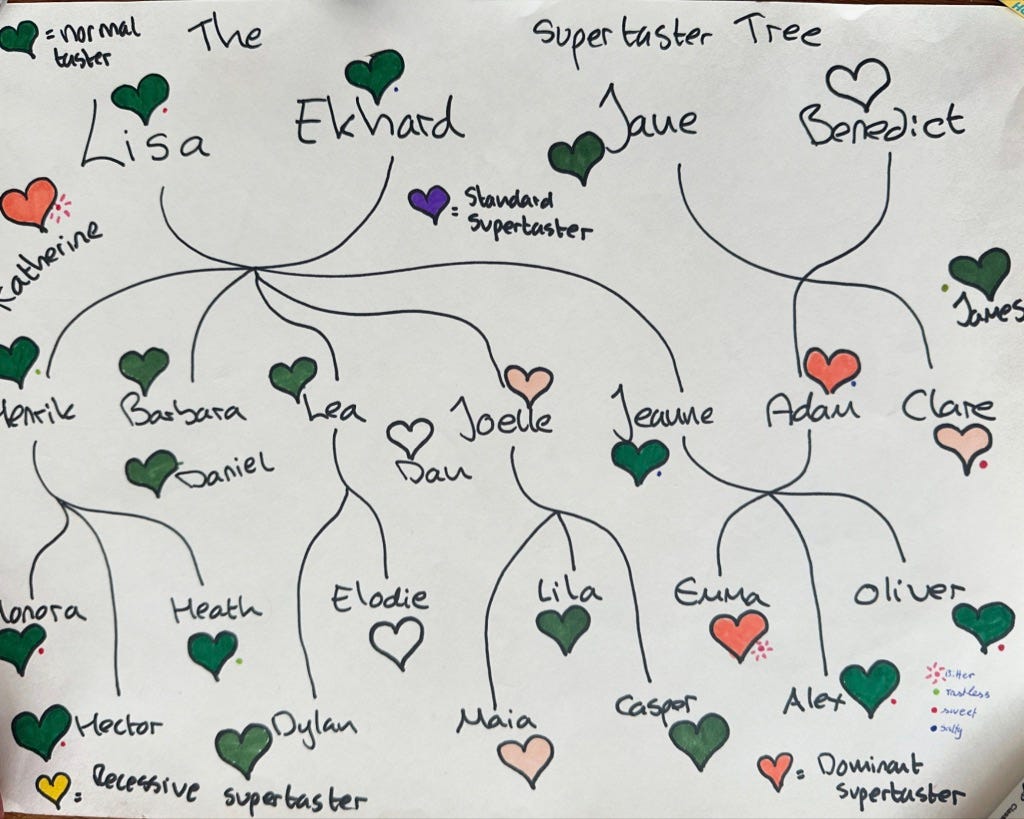 = normal
taster
The Supertaster Tree
Lisa Ekhard Jane Benedict
Katherine
= Standard
Supertaster
James
Henrik Barbara Lea Joelle Jeanne Adam Clare
Daniel Dan
Honora Heath Elodie Lila Emma Oliver
Hector Dylan Maia Casper Alex
Bitter
tastless
sweet
salty
= Recessive supertaster
= Dominant
Supertaster